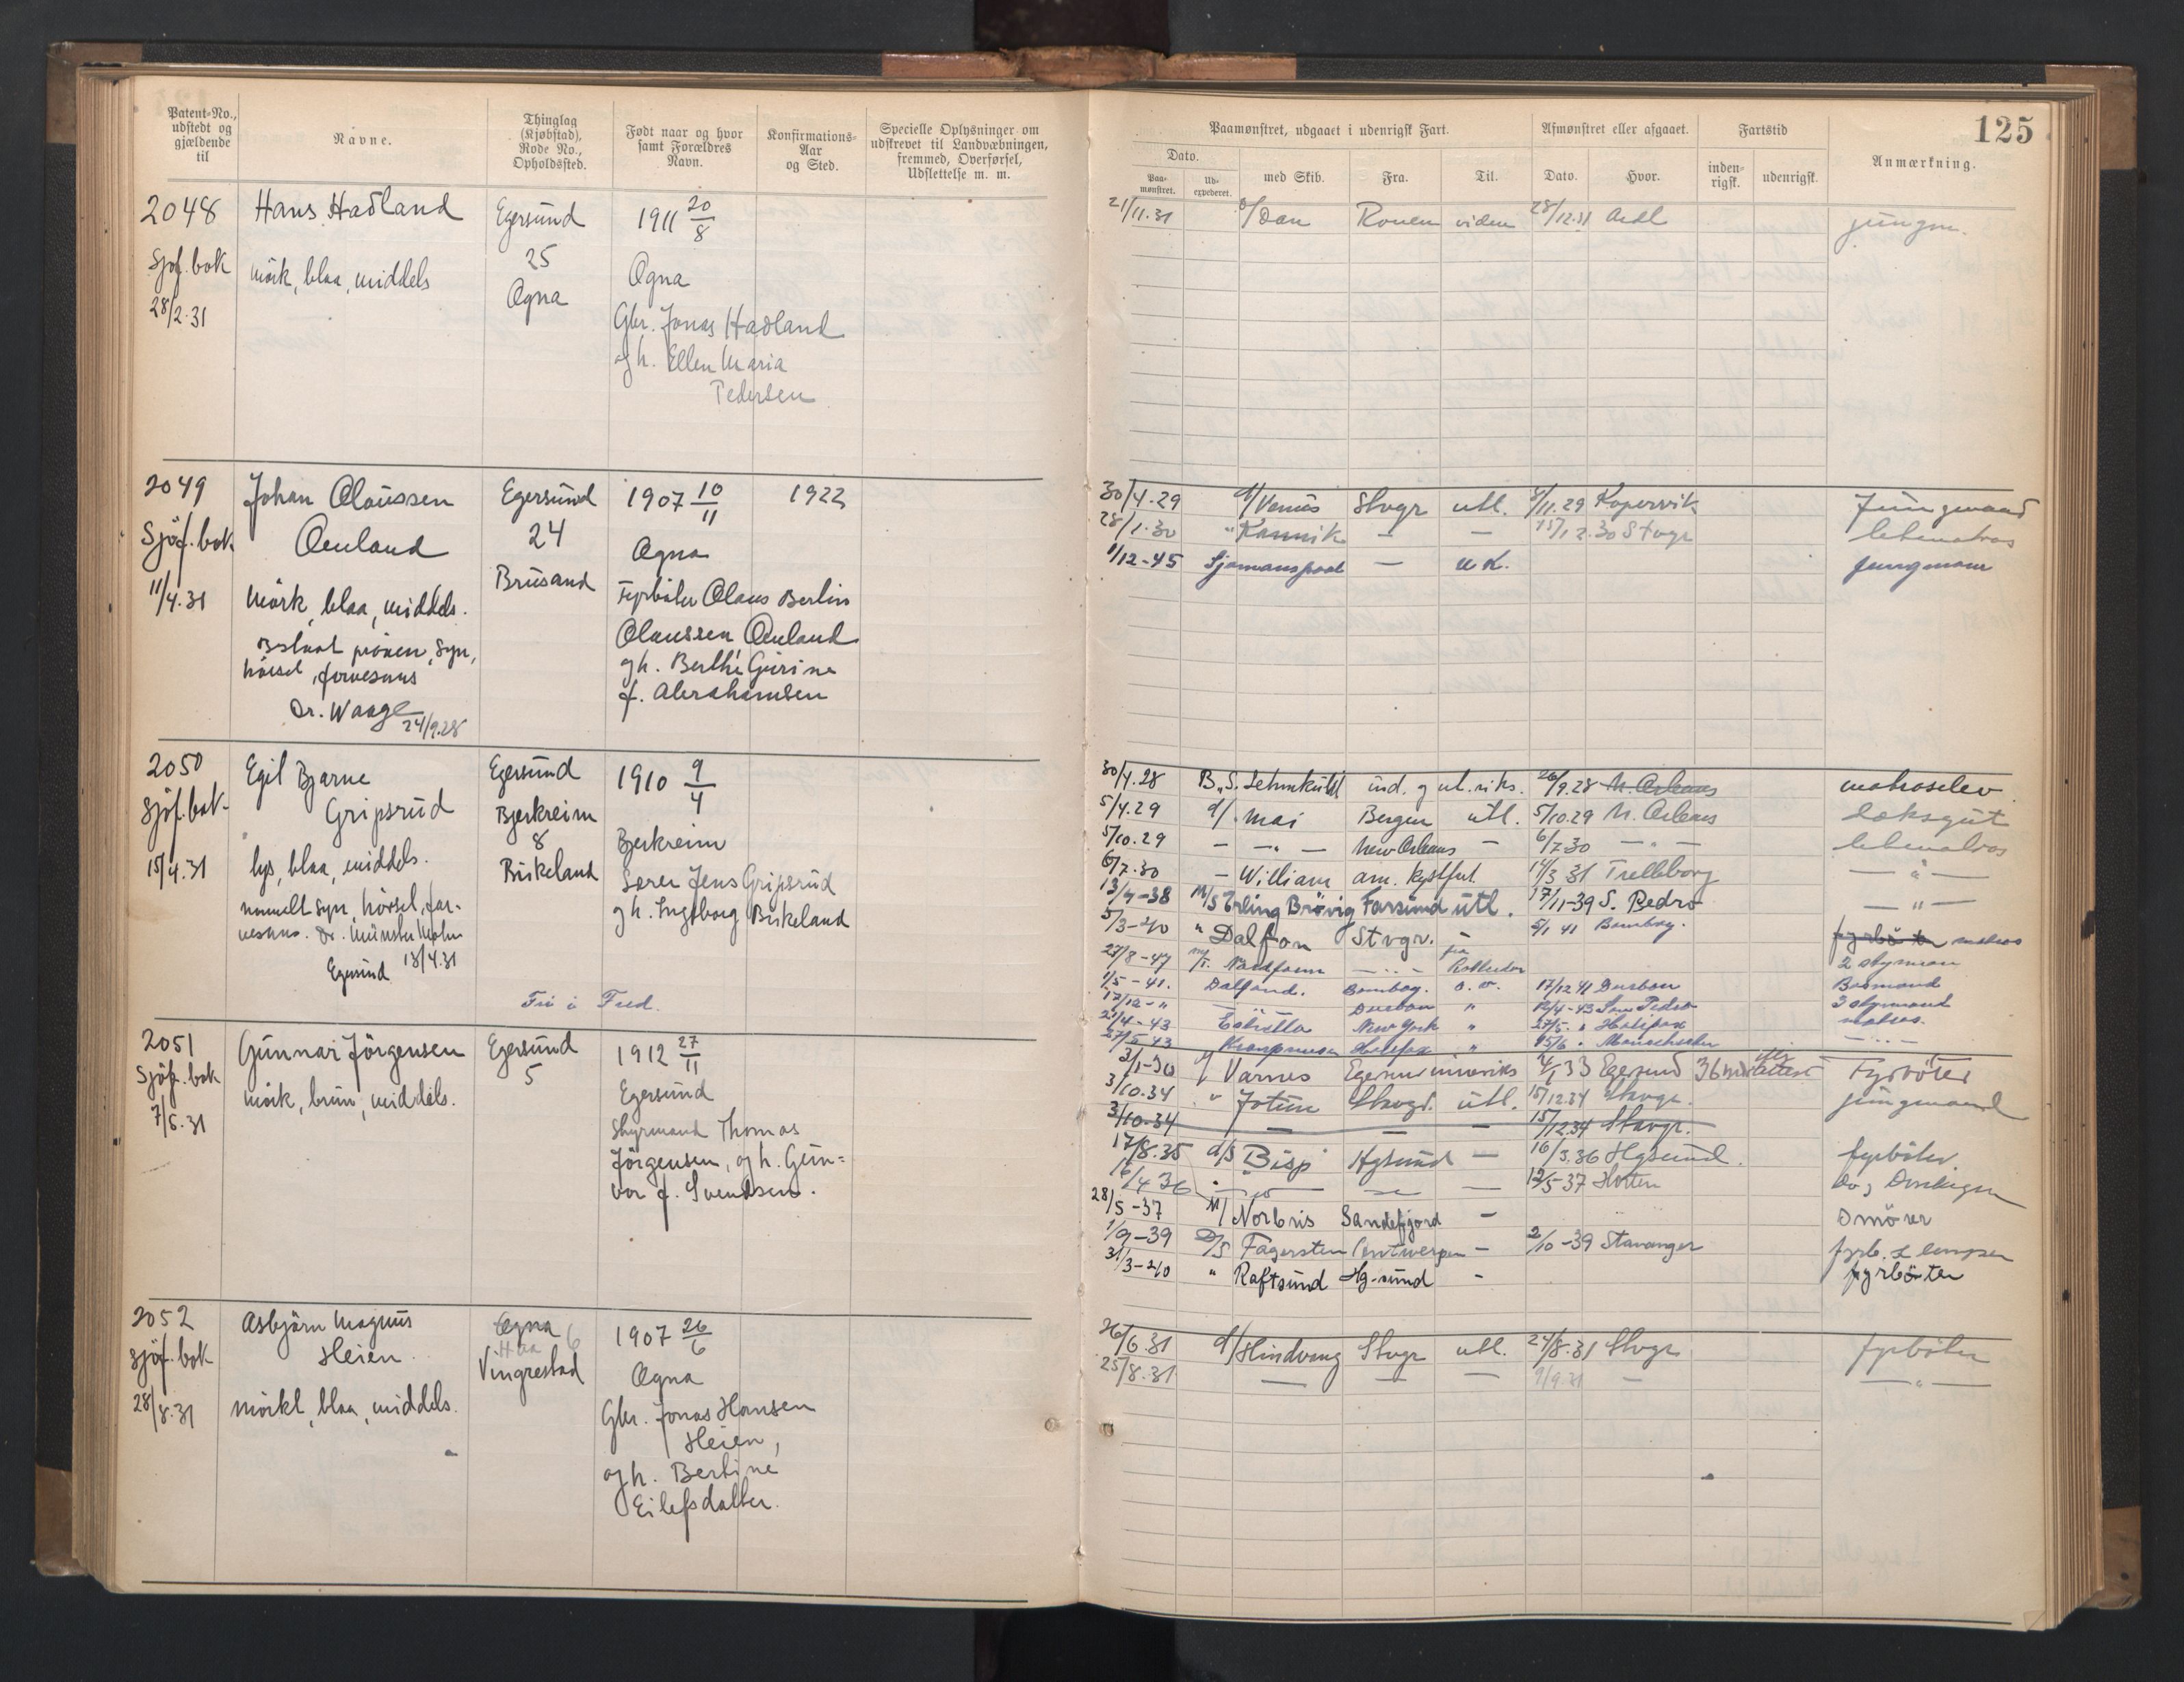 Patent-No., udstedt og gjældende til
Navne.
Thinglag (Kjøbstad), Rode No., Opholdssted.
Født naar og hvor samt Forældres Navn.
Konfirmations-Aar og Sted.
Specielle Oplysninger om udskrevet til Landvæbningen, fremmed, Overførsel, Udslettelse m. m.
2048
Sjøf. bok
28/2.31
Hans Hadland
mörk, blaa, middels
Egersund
25
Ogna
1911 20/8
Ogna
Gbr. Jonas Hadland
og h. Ellen Maria
Pedersen
2049
Sjöf. bok
11/4.31
Johan Olaussen
Auland
Mörk, blaa, middels.
Bestaat pröven, syn,
hörsel, farvesans
Dr. Waage
24/9.28
Egersund
24
Brusand
1907 10/11
Ogna
Fyrböter Olaus Berlin
Olaussen Auland
og h. Berthe Gurine
f. Abrahamsen
1922
2050
Sjöf. bok
15/4.31
Egil Bjarne
Gripsrud
lys, blaa, middels.
normalt syn, hörsel, far-
vesans. Dr. Münster Mohn
Egersund 13/4.31
Egersund
Bjerkreim
8
Birkeland
1910 9/4
Bjerkreim
Lærer Jens Gripsrud
og h. Ingeborg Birkeland
Fri i Fred.
2051
Sjöf. bok
7/5.31
Gunnar Jörgensen
mörk, brun, middels.
Egersund
5
1912 27/11
Egersund
Styrmand Thomas
Jörgensen, og h. Gun=
vor f. Svendsen.
2052
Sjöf. bok
28/8.31
Asbjörn Magnus
Heien
mörkt, blaa, middels.
Ogna
Haa 6
Vingrestad
1907 26/6
Ogna
Gbr. Jonas Hansen
Heien,
og h. Bertine
Eilefsdatter.
125
Paamønstret, udgaaet i udenrigsk Fart.
Afmønstret eller afgaaet.
Fartstid
Anmærkning.
Dato.
Paa-mønstret.
Ud-expederet.
med Skib.
Fra.
Til.
Dato.
Hvor.
inden-rigsk.
udenrigsk.
21/11.31 D/Dan Rouen viden 28/12.31 jungm.
30/4.29 d/Venus Stvgr utl. 8/11.29 Kopervik Jungmand
28/1.30 " Kannik — — 15/12.30 Stvgr letmatros
1/12-45 Sjømannspool — U.K. jungmann
30/4.28 B.S. Lehmkuhl ind. og ut.riks. 26/9.28 N. Orleans matroselev
5/4.29 d/ Mai Bergen utl. 5/10.29 N. Orleans dæksgut
5/10.29 — " — New Orleans — 6/7.30 — " — letmatros
6/7.30 — William am. kystfart 14/3 31 Trelleborg — " —
13/7-38 M/S Erling Brövig Farsund utl. 17/11-39 S. Pedro — " —
5/3-40 " Dalfonn Stvgr. — 5/1 41 Bombay. fyrböter matros
27/8-47 m/T. Nordfonn — " — Rotterdam 2 styrmann
1/5-41. Dalfonn. Bombay. o. v. 17/12 41 Durban Baasmand
17/12-" — " — Durban " 12/4-43 San Pedro 3 styrmand
21/4-43 New York " 27/5. " Halifax matros.
27/5 43 Halifax " 15/6 " Manschester — " —
2/1-30 d/ Varnes Egersund innenriks 2/1 33 Egersund 36 mdr attest Fyrböter
3/10.34 " Jotun Stvgr. utl. 15/12.34 Stvgr. jungmand
3/10.34 — — — 15/12.34 Stavgr.
17/8.35 d/S Bisp Hgsund — 16/3.36 Hgsund. fyrböter.
16/4 36 — " — — — 12/5-37 Horten
28/5-37 M/ Norbris Sandefjord — Smörer
1/9-39 D/S Fagersten Antwerpen — 2/10-39 Stavanger fyrb. & lemper
31/3-40 " Raftsund Hg-sund — fyrböter
26/6.31 d/Hindvang Stvgr utl. 24/8.31 Stvgr fyrböter
25/8.31 — — — 9/9.31 — — " —